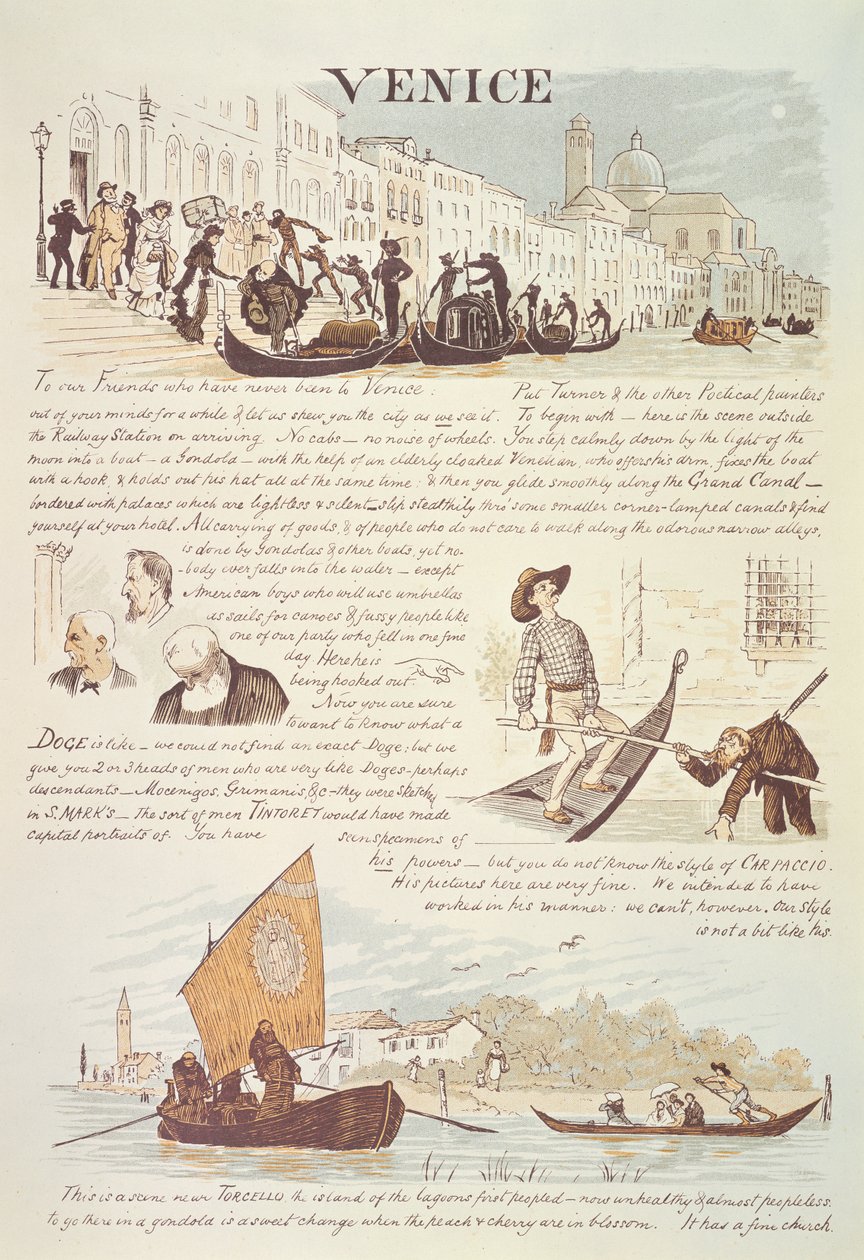 VENICE
To our Friends who have never been to Venice: Put Turner & the other Poetical painters
out of your minds for a while & let us shew you the city as we see it. To begin with — here is the scene outside
the Railway Station on arriving. No cabs — no noise of wheels. You step calmly down by the light of the
moon into a boat — a Gondola — with the help of an elderly cloaked Venetian, who offers his arm, fixes the boat
with a hook, & holds out his hat all at the same time: & then you glide smoothly along the Grand Canal —
bordered with palaces which are lightless & silent — slip stealthily thro' some smaller corner-lamped canals & find
yourself at your hotel. All carrying of goods, & of people who do not care to walk along the odorous narrow alleys,
is done by Gondolas & other boats, yet no-
-body ever falls into the water — except
American boys who will use umbrellas
as sails for canoes & fussy people like
one of our party who fell in one fine
day. Here he is
being hooked out.
Now you are sure
to want to know what a
DOGE is like — we could not find an exact Doge; but we
give you 2 or 3 heads of men who are very like Doges — perhaps
descendants — Mocenigos, Grimanis, &c — they were sketched
in S. MARK'S — the sort of men TINTORET would have made
capital portraits of. You have seen specimens of
his powers — but you do not know the style of CARPACCIO.
His pictures here are very fine. We intended to have
worked in his manner: we can't, however. Our style
is not a bit like his.
This is a scene near TORCELLO, the island of the lagoons first peopled — now unhealthy & almost peopleless.
to go there in a gondola is a sweet change when the peach & cherry are in blossom. It has a fine church.